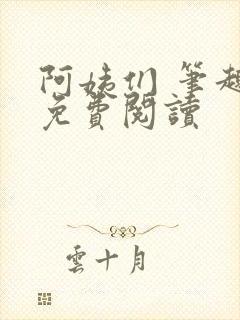 阿姨们 筆趣
免費閱讀
雲十月